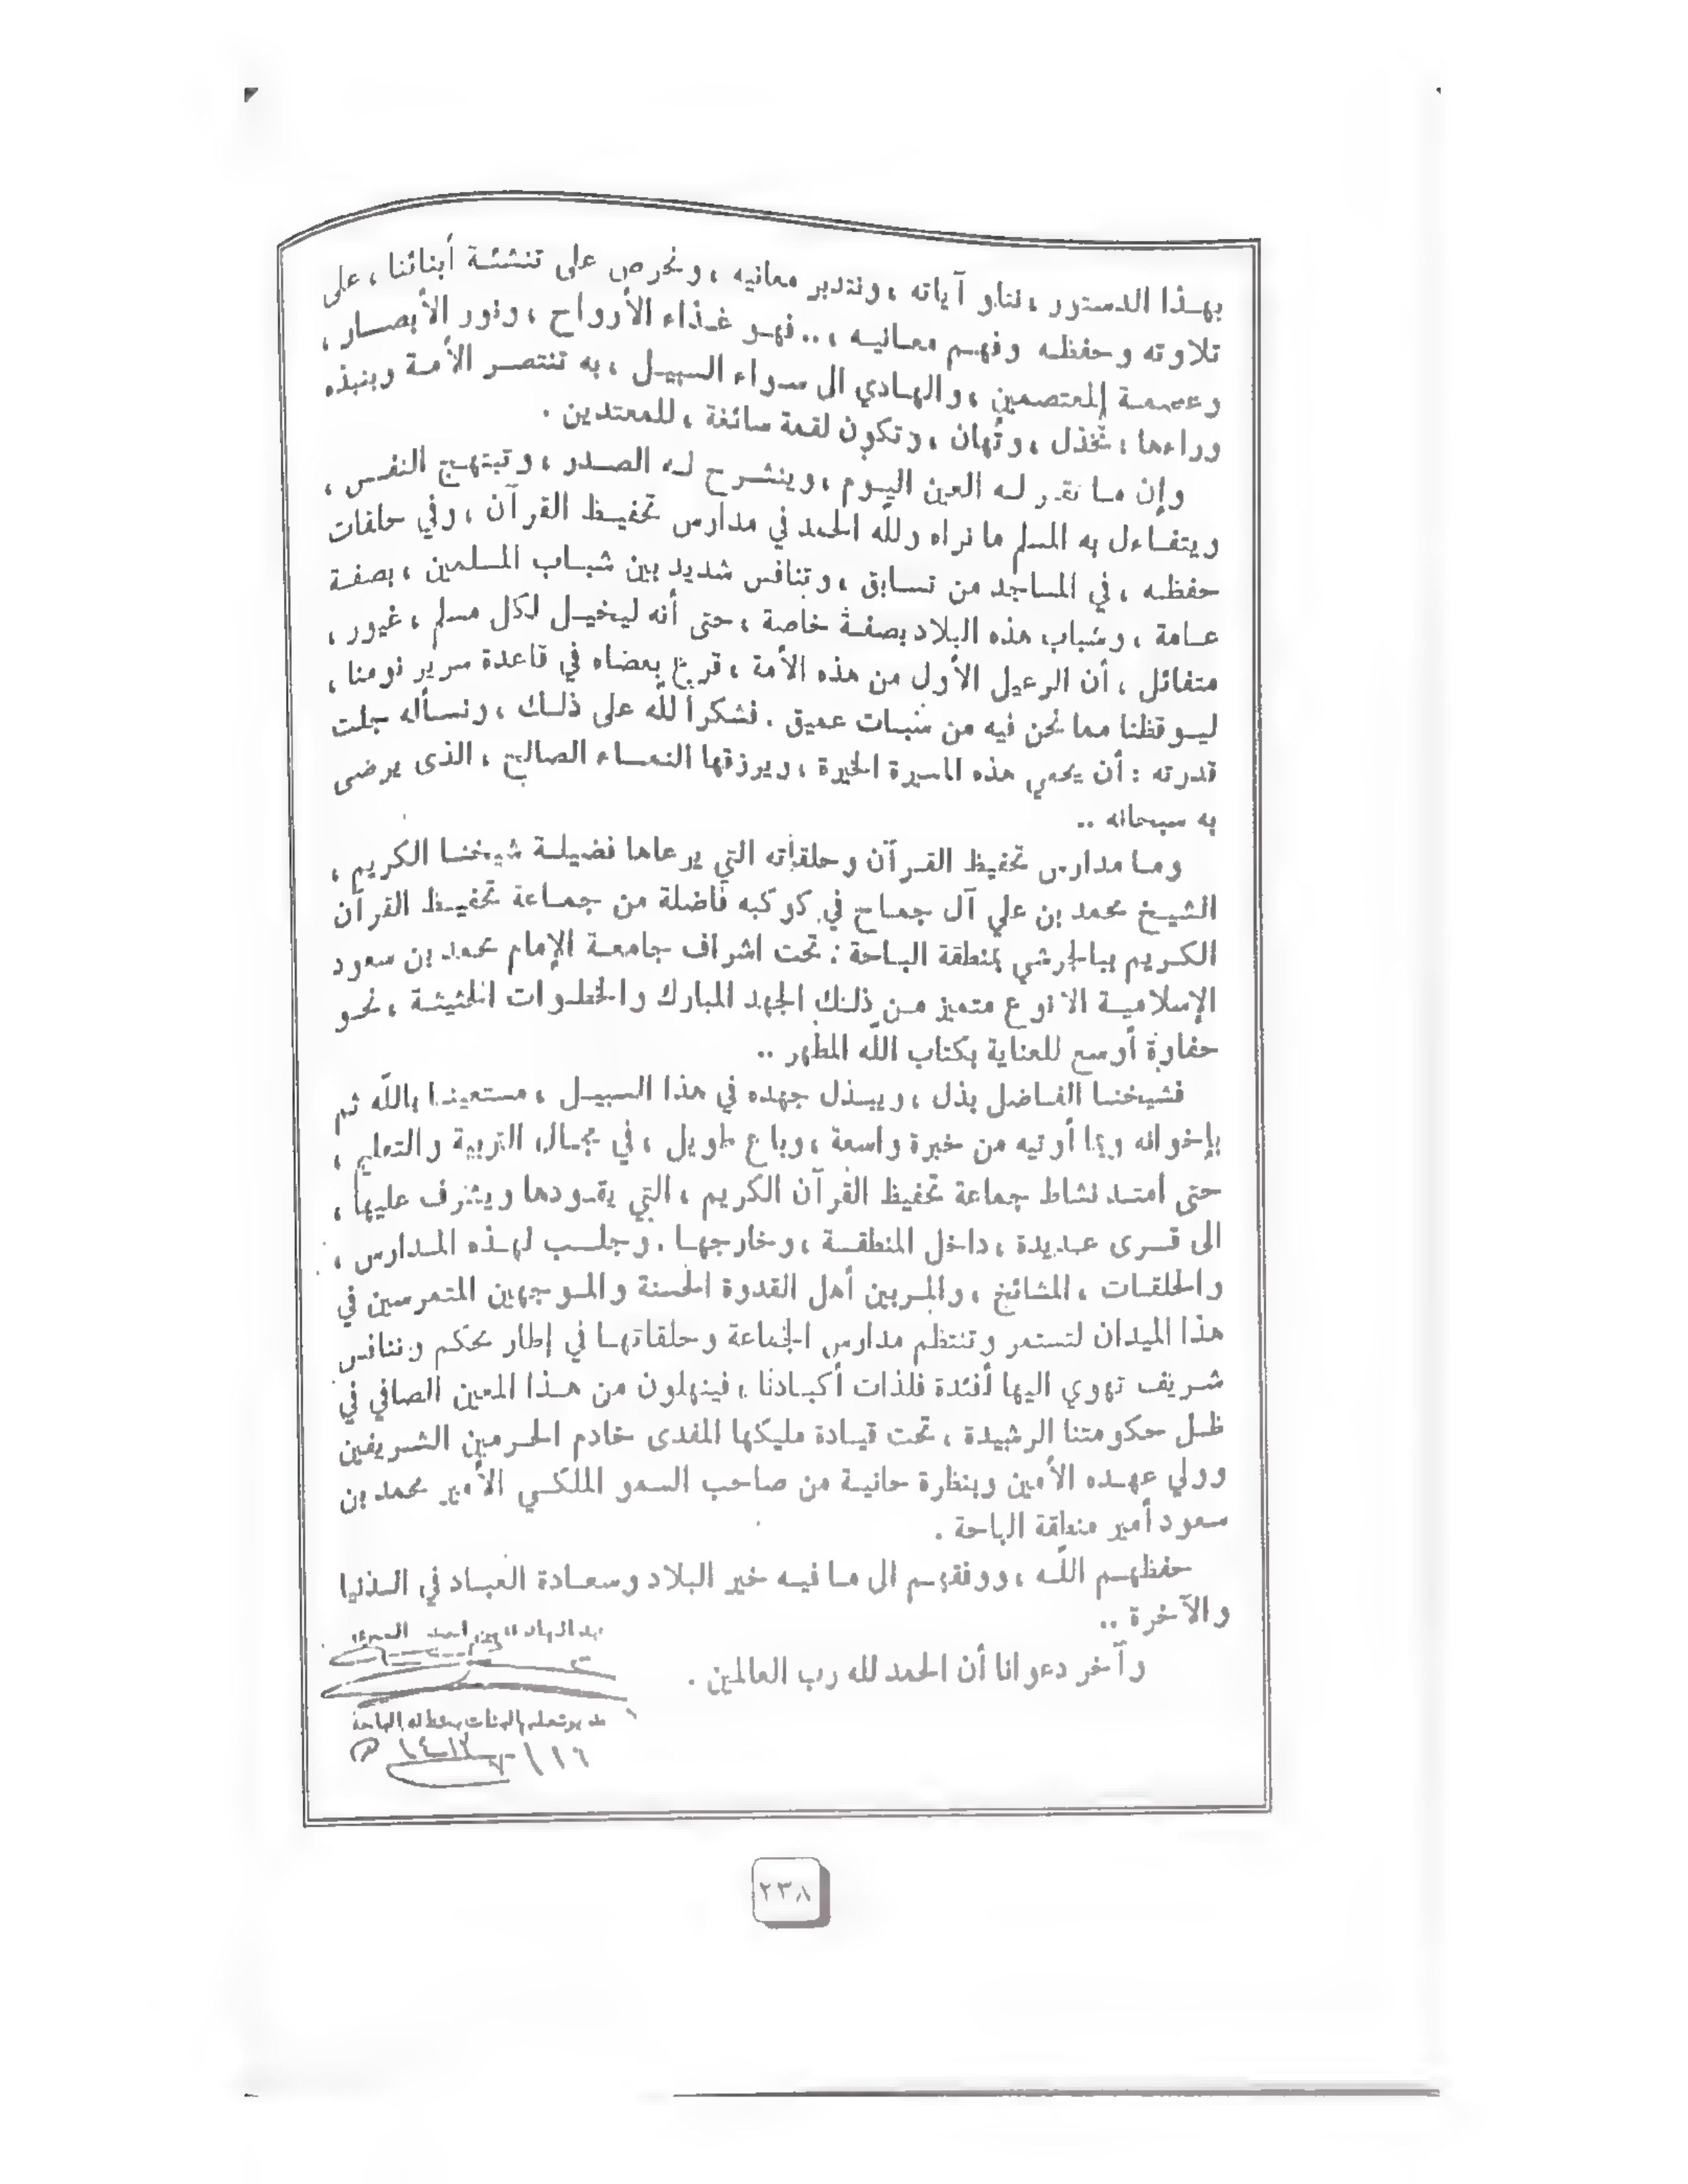 بهذا الدستور ، نتلو آياته ، ونتدبر معانيه ، ونحرص على تنشئة أبنائنا ، على
تلاوته وحفظه وفهم معانيه ، .. فهو غذاء الأرواح ، ونور الأبصار ،
وعصمة المعتصمين ، والهادي الى سواء السبيل ، به تنتصر الأمة وبنبذه
وراءها ، تُخذل ، وتُهان ، وتكون لقمة سائغة ، للمعتدين .
وإن ما تقر له العين اليوم ، وينشرح له الصدر ، وتبتهج النفس ،
ويتفاءل به المسلم ما نراه ولله الحمد في مدارس تحفيظ القرآن ، وفي حلقات
حفظه ، في المساجد من تسابق ، وتنافس شديد بين شباب المسلمين ، بصفة
عامة ، وشباب هذه البلاد بصفة خاصة ، حتى أنه ليخيل لكل مسلم ، غيور ،
متفائل ، أن الرعيل الأول من هذه الأمة ، قرع بعصاه في قاعدة سرير نومنا ،
ليوقظنا مما نحن فيه من سُبات عميق . فشكراً لله على ذلك ، ونسأله جلت
قدرته : أن يحمي هذه المسيرة الخيرة ، ويرزقها النماء الصالح ، الذى يرضى
به سبحانه ..
وما مدارس تحفيظ القرآن وحلقاته التي يرعاها فضيلة شيخنا الكريم ،
الشيخ محمد بن علي آل جماح في كوكبه فاضلة من جماعة تحفيظ القرآن
الكريم ببالجرشي بمنطقة الباحة : تحت اشراف جامعة الإمام محمد بن سعود
الإسلامية الا نوع متميز من ذلك الجهد المبارك والخطوات الحثيثة ، نحو
حفاوة أوسع للعناية بكتاب الله المطهر ..
فشيخنا الفاضل بذل ، ويبذل جهده في هذا السبيل ، مستعينا بالله ثم
بإخوانه وبما أوتيه من خبرة واسعة ، وباع طويل ، في مجال التربية والتعليم ،
حتى امتد نشاط جماعة تحفيظ القرآن الكريم ، التي يقودها ويشرف عليها ،
الى قرى عديدة ، داخل المنطقة ، وخارجها . وجلب لهذه المدارس ،
والحلقات ، المشائخ ، والمربين أهل القدوة الحسنة والموجهين المتمرسين في
هذا الميدان لتستمر وتنتظم مدارس الجماعة وحلقاتها في إطار محكم وتنافس
شريف تهوي اليها أفئدة فلذات أكبادنا ، فينهلون من هذا المعين الصافي في
ظل حكومتنا الرشيدة ، تحت قيادة مليكها المفدى خادم الحرمين الشريفين
وولي عهده الأمين وبنظرة حانية من صاحب السمو الملكي الأمير محمد بن
سعود أمير منطقة الباحة .
حفظهم الله ، ووفقهم الى ما فيه خير البلاد وسعادة العباد في الدنيا
والآخرة ..
وآخر دعوانا أن الحمد لله رب العالمين .
بن احمد
مدير تعليم البنات بمنطقة الباحة
٢٣٨